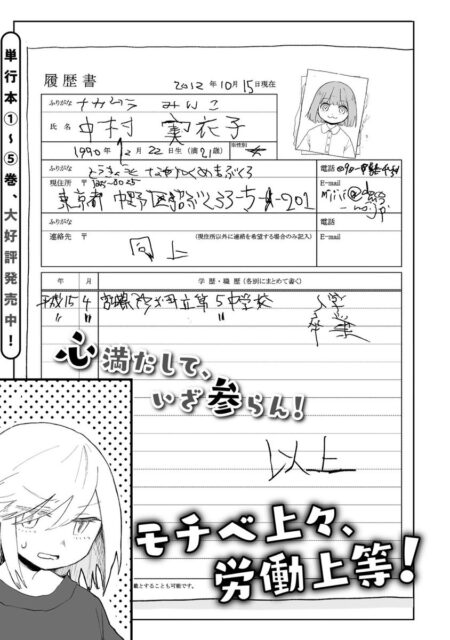 単行本①~⑤巻、大好評発売中!
履歴書
2012年10月15日現在
ふりがな なかむら みいこ
氏名 中村 実衣子
1990年12月22日生(満21歳)
ふりがな
現住所 〒
東京都 中野区
201
電話
E-mail
ふりがな
連絡先 〒 (現住所以外に連絡を希望する場合のみ記入)
同上
電話
E-mail
年 月 学歴・職歴(各別にまとめて書く)
平成15 4 立第5中学校 入学
〃 〃 〃 卒業
心満たして、
いざ参らん!
以上
モチベ上々、
労働上等!
載とすることも可能です。